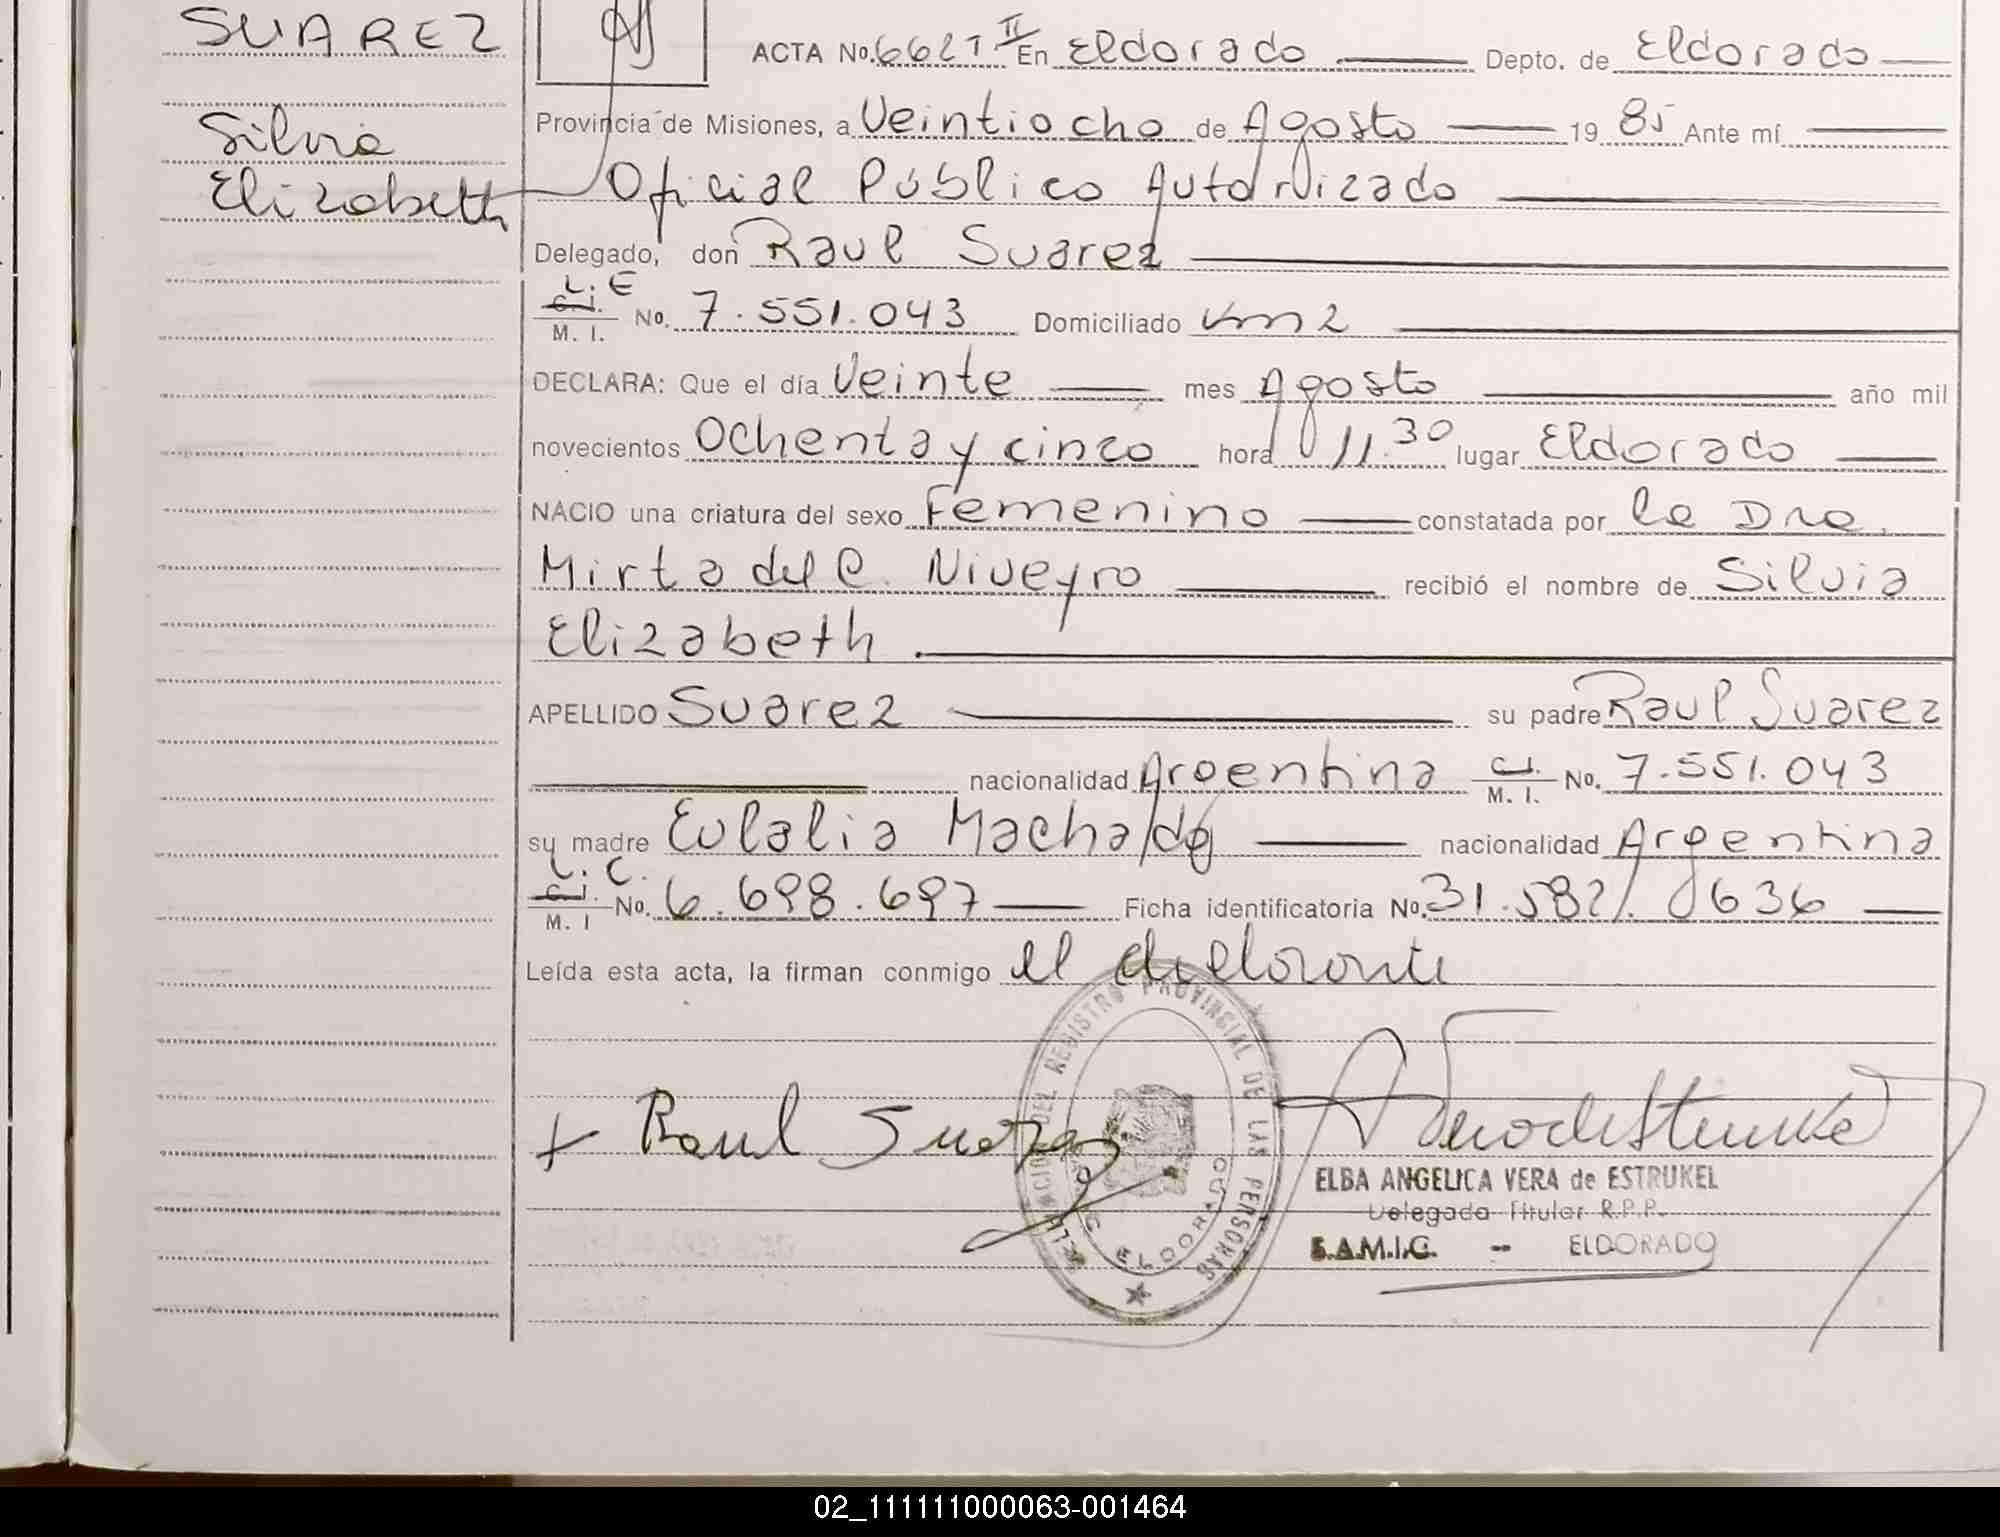 SUAREZ
Silvia
Elizabeth
ACTA No. 662 T II En Eldorado Depto. de Eldorado
Provincia de Misiones, a Veintiocho de Agosto 19 85 Ante mí
Oficial Público Autorizado
Delegado, don Raul Suarez
L.E
C.I.
M. I. No. 7.551.043 Domiciliado Km 2
DECLARA: Que el día Veinte mes Agosto año mil
novecientos Ochenta y cinco hora 11.30 lugar Eldorado
NACIO una criatura del sexo Femenino constatada por la Dra.
Mirta del C. Niveyro recibió el nombre de Silvia
Elizabeth
APELLIDO Suarez su padre Raul Suarez
nacionalidad Argentina C.I. M. I. No. 7.551.043
su madre Eulalia Machado nacionalidad Argentina
L.C.
C.I.
M. I No. 6.698.697 Ficha identificatoria No. 31.582.636
Leída esta acta, la firman conmigo el declarante
+ Raul Suarez
DEL REGISTRO PROVINCIAL DE LAS PERSONAS
ELDORADO
ELBA ANGELICA VERA de ESTRUKEL
Delegada Titular R.P.P.
S.A.M.I.C. - ELDORADO
02_111111000063-001464